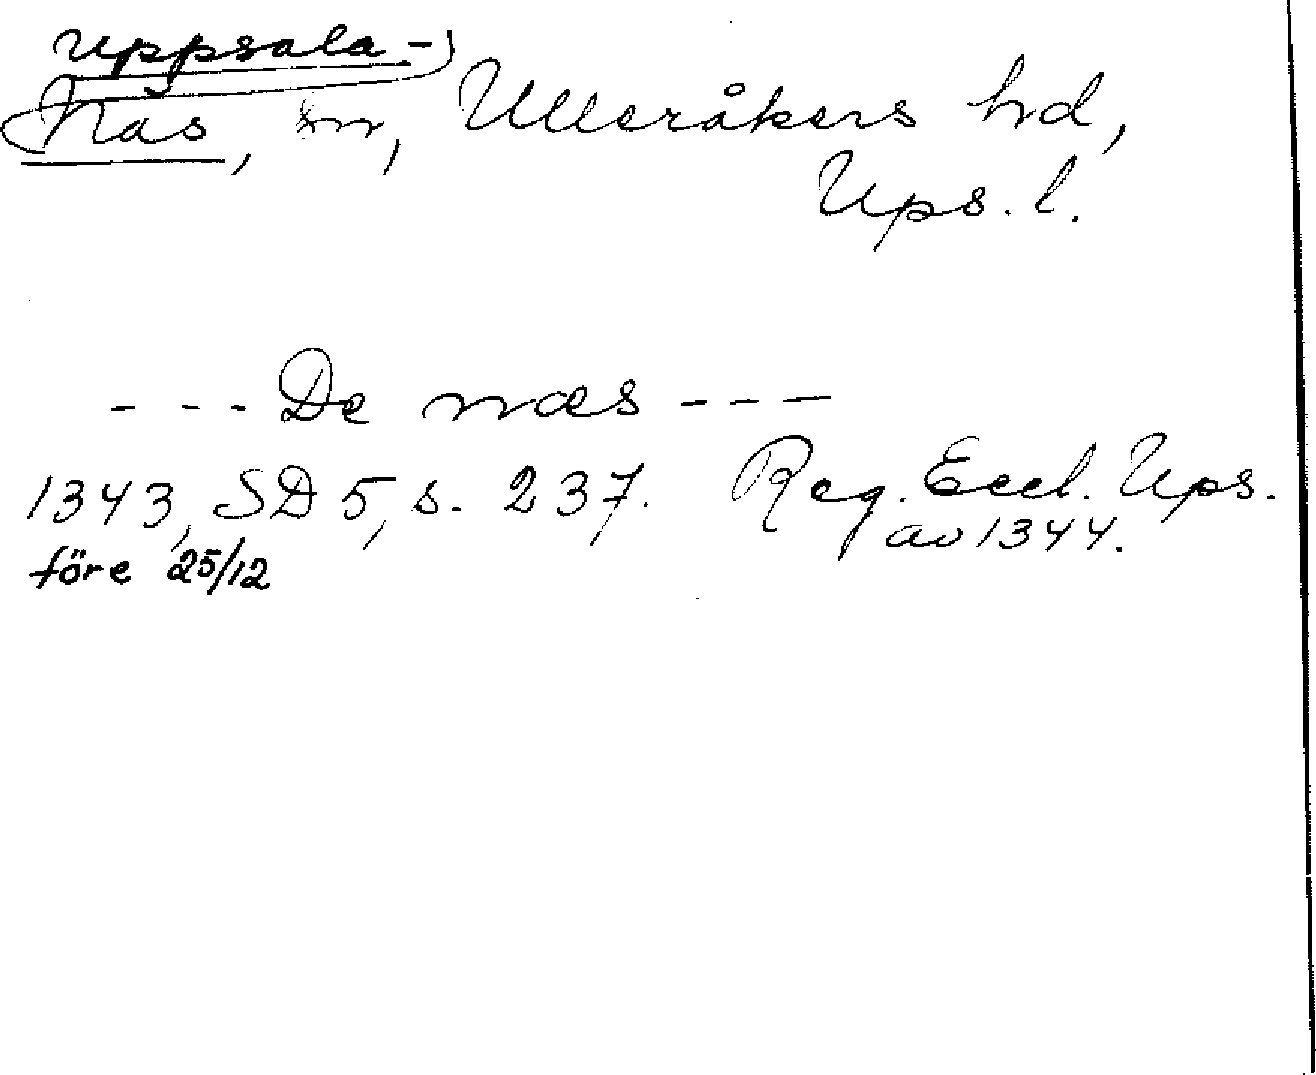 Uppsala-
Näs, sn, Ulleråkers hd,
Ups. l.
- - - De næs - - -
1343, SD 5, s. 237. Reg. Eccl. Ups.
av 1344.
före 25/12